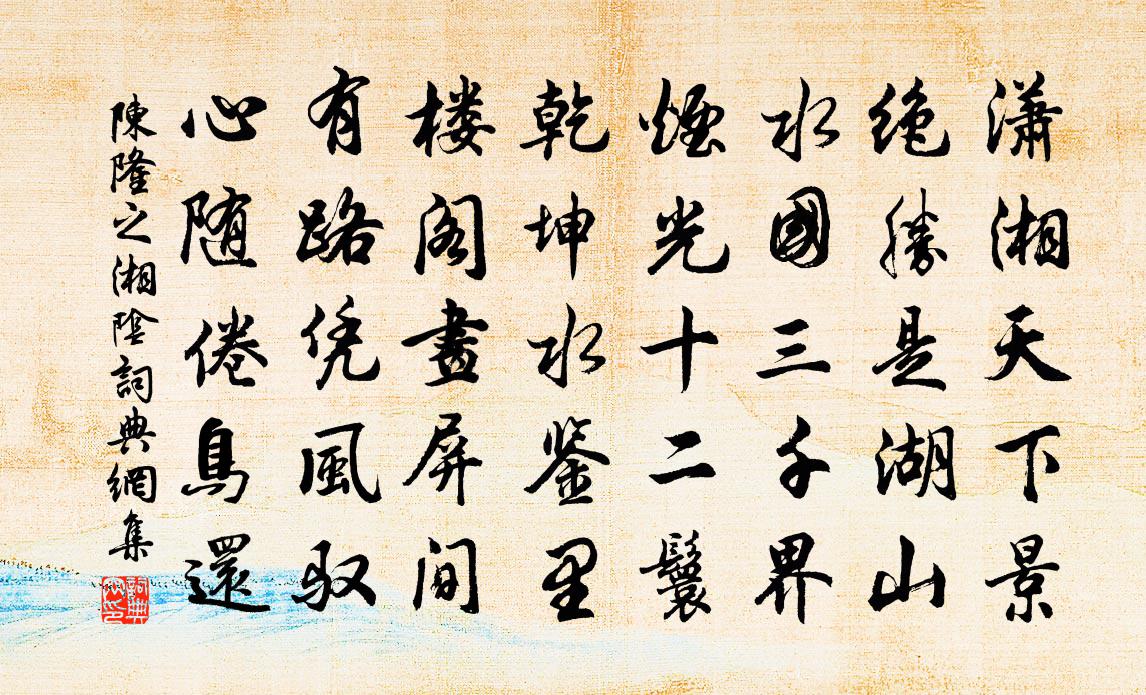 潇湘天下景
绝勝是湖山
水國三千界
煙光十二鬟
乾坤水鉴里
楼阁畫屏间
有路凭風驭
心随倦鳥還
陳隆之湘陰詞典網集